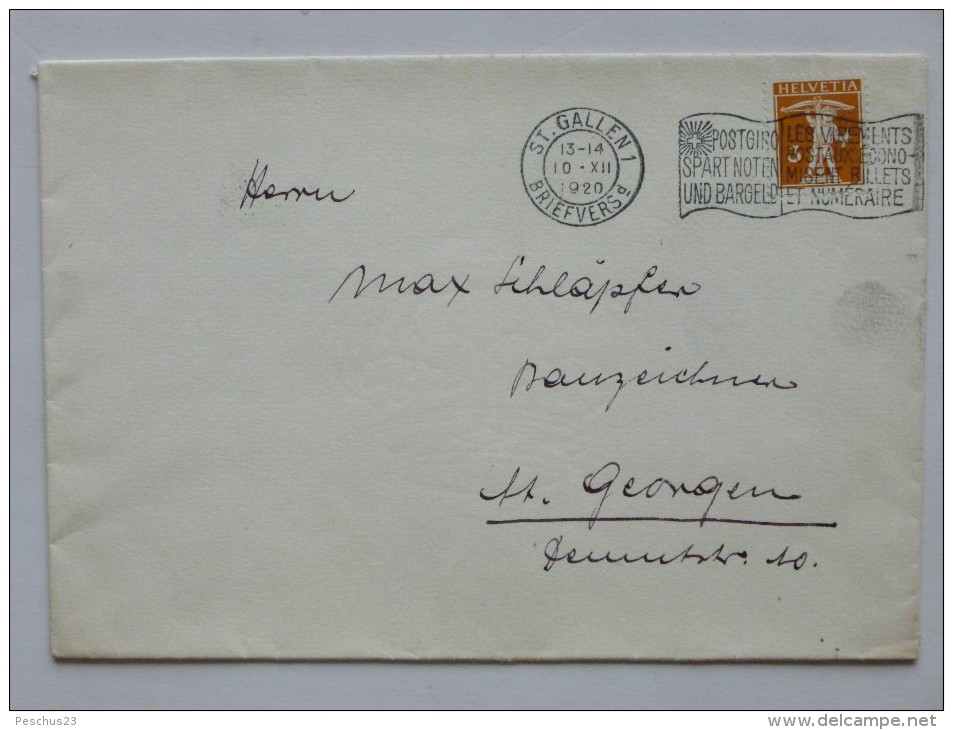 HELVETIA
ST. GALLEN 1
13-14
10·XII
1920
BRIEFVERSd.
POSTGIRO
SPART NOTEN
UND BARGELD
LES VIREMENTS
POSTAUX ÉCONO-
MISENT BILLETS
ET NUMÉRAIRE
Herrn
Max Schläpfer
Bauzeichner
St. Georgen
Demutstr. 10.
Peschus23
www.delcampe.net